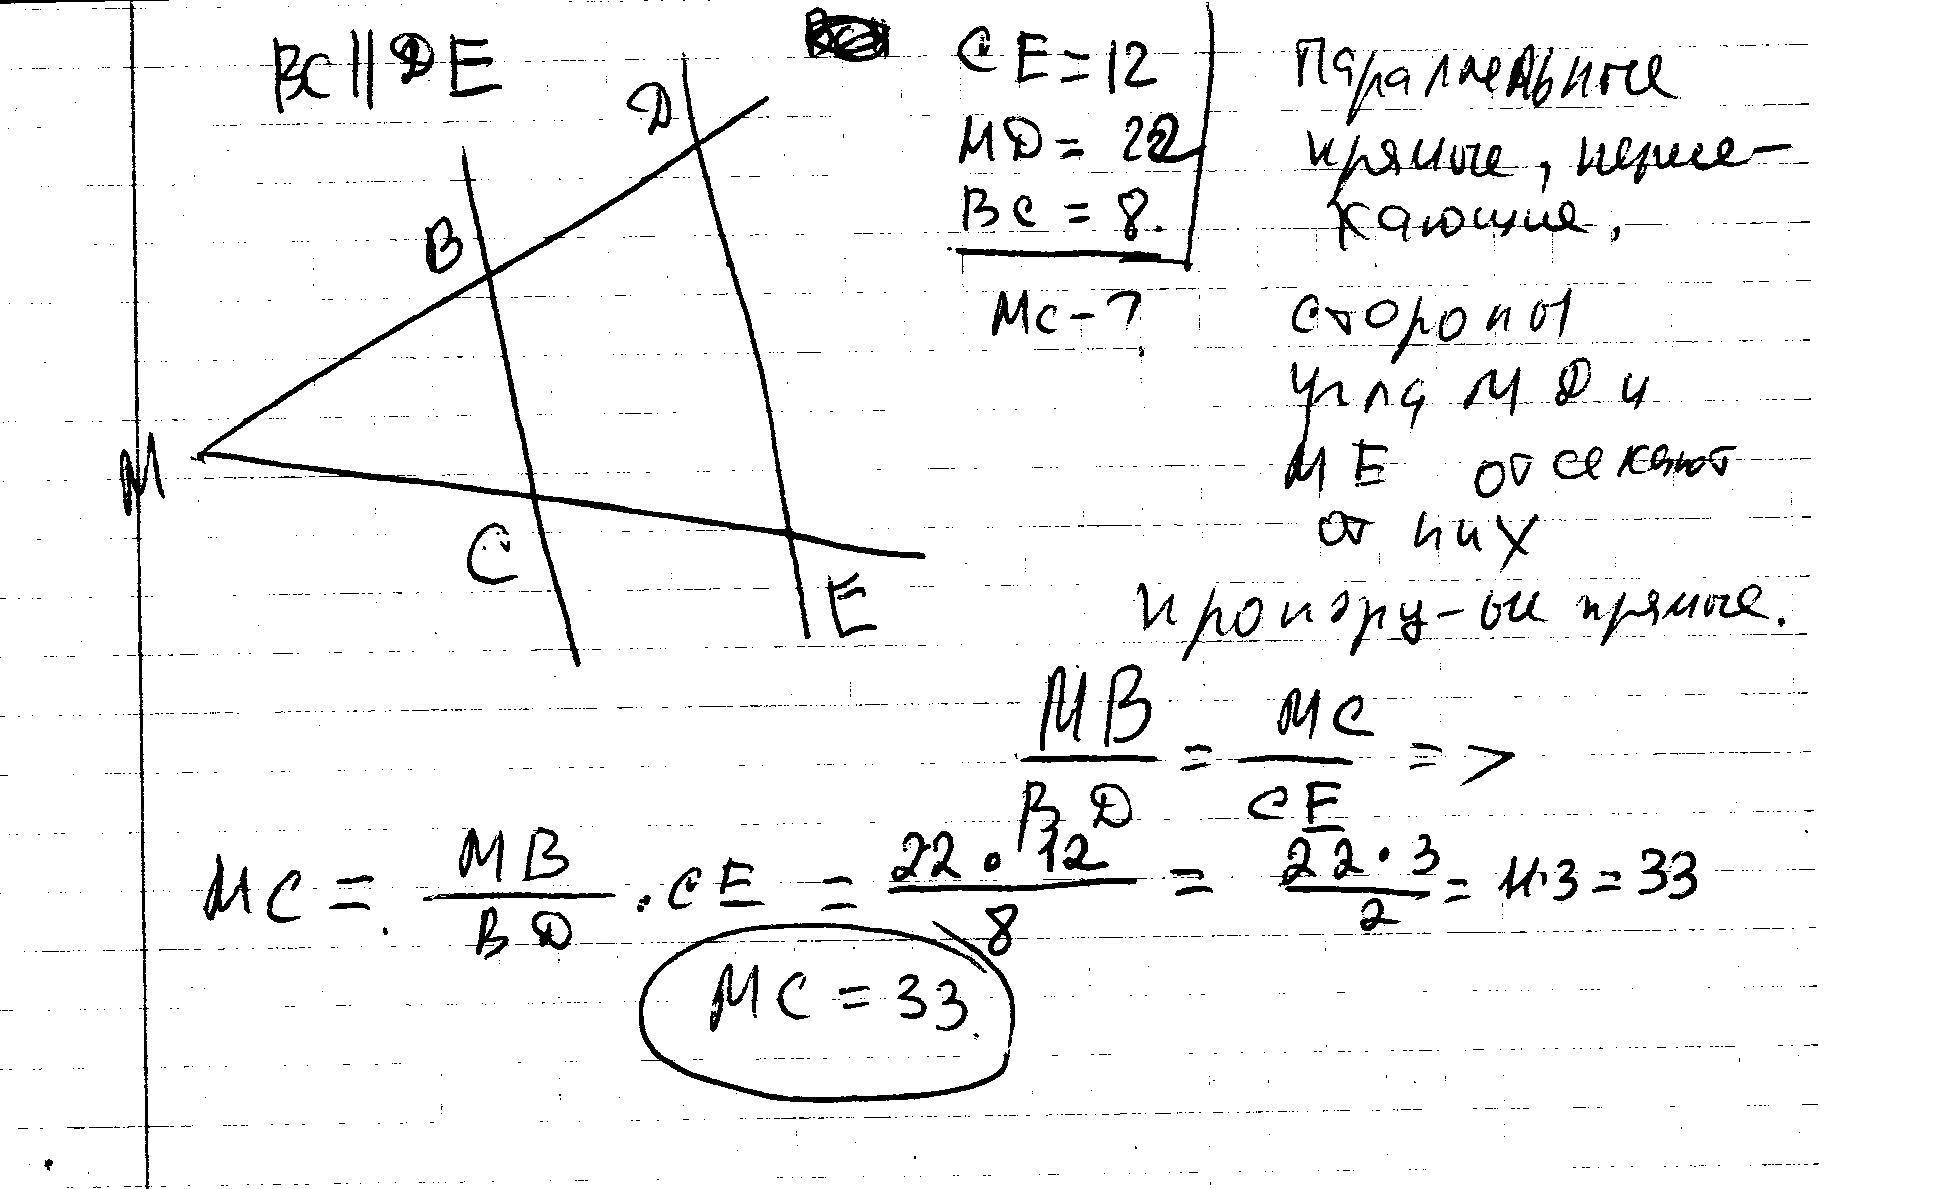 BC || DE
CE = 12
MD = 22
BC = 8.
MC - ?
Паралельные
прямые, пересе-
кающие,
стороны
угла MD и
ME отсекают
от них
пропорц-ые прямые.
MB/BD = MC/CE =>
MC = MB/BD · CE = 22 · 12/8 = 22 · 3/2 = 11·3 = 33
MC = 33.
D
B
M
C
E